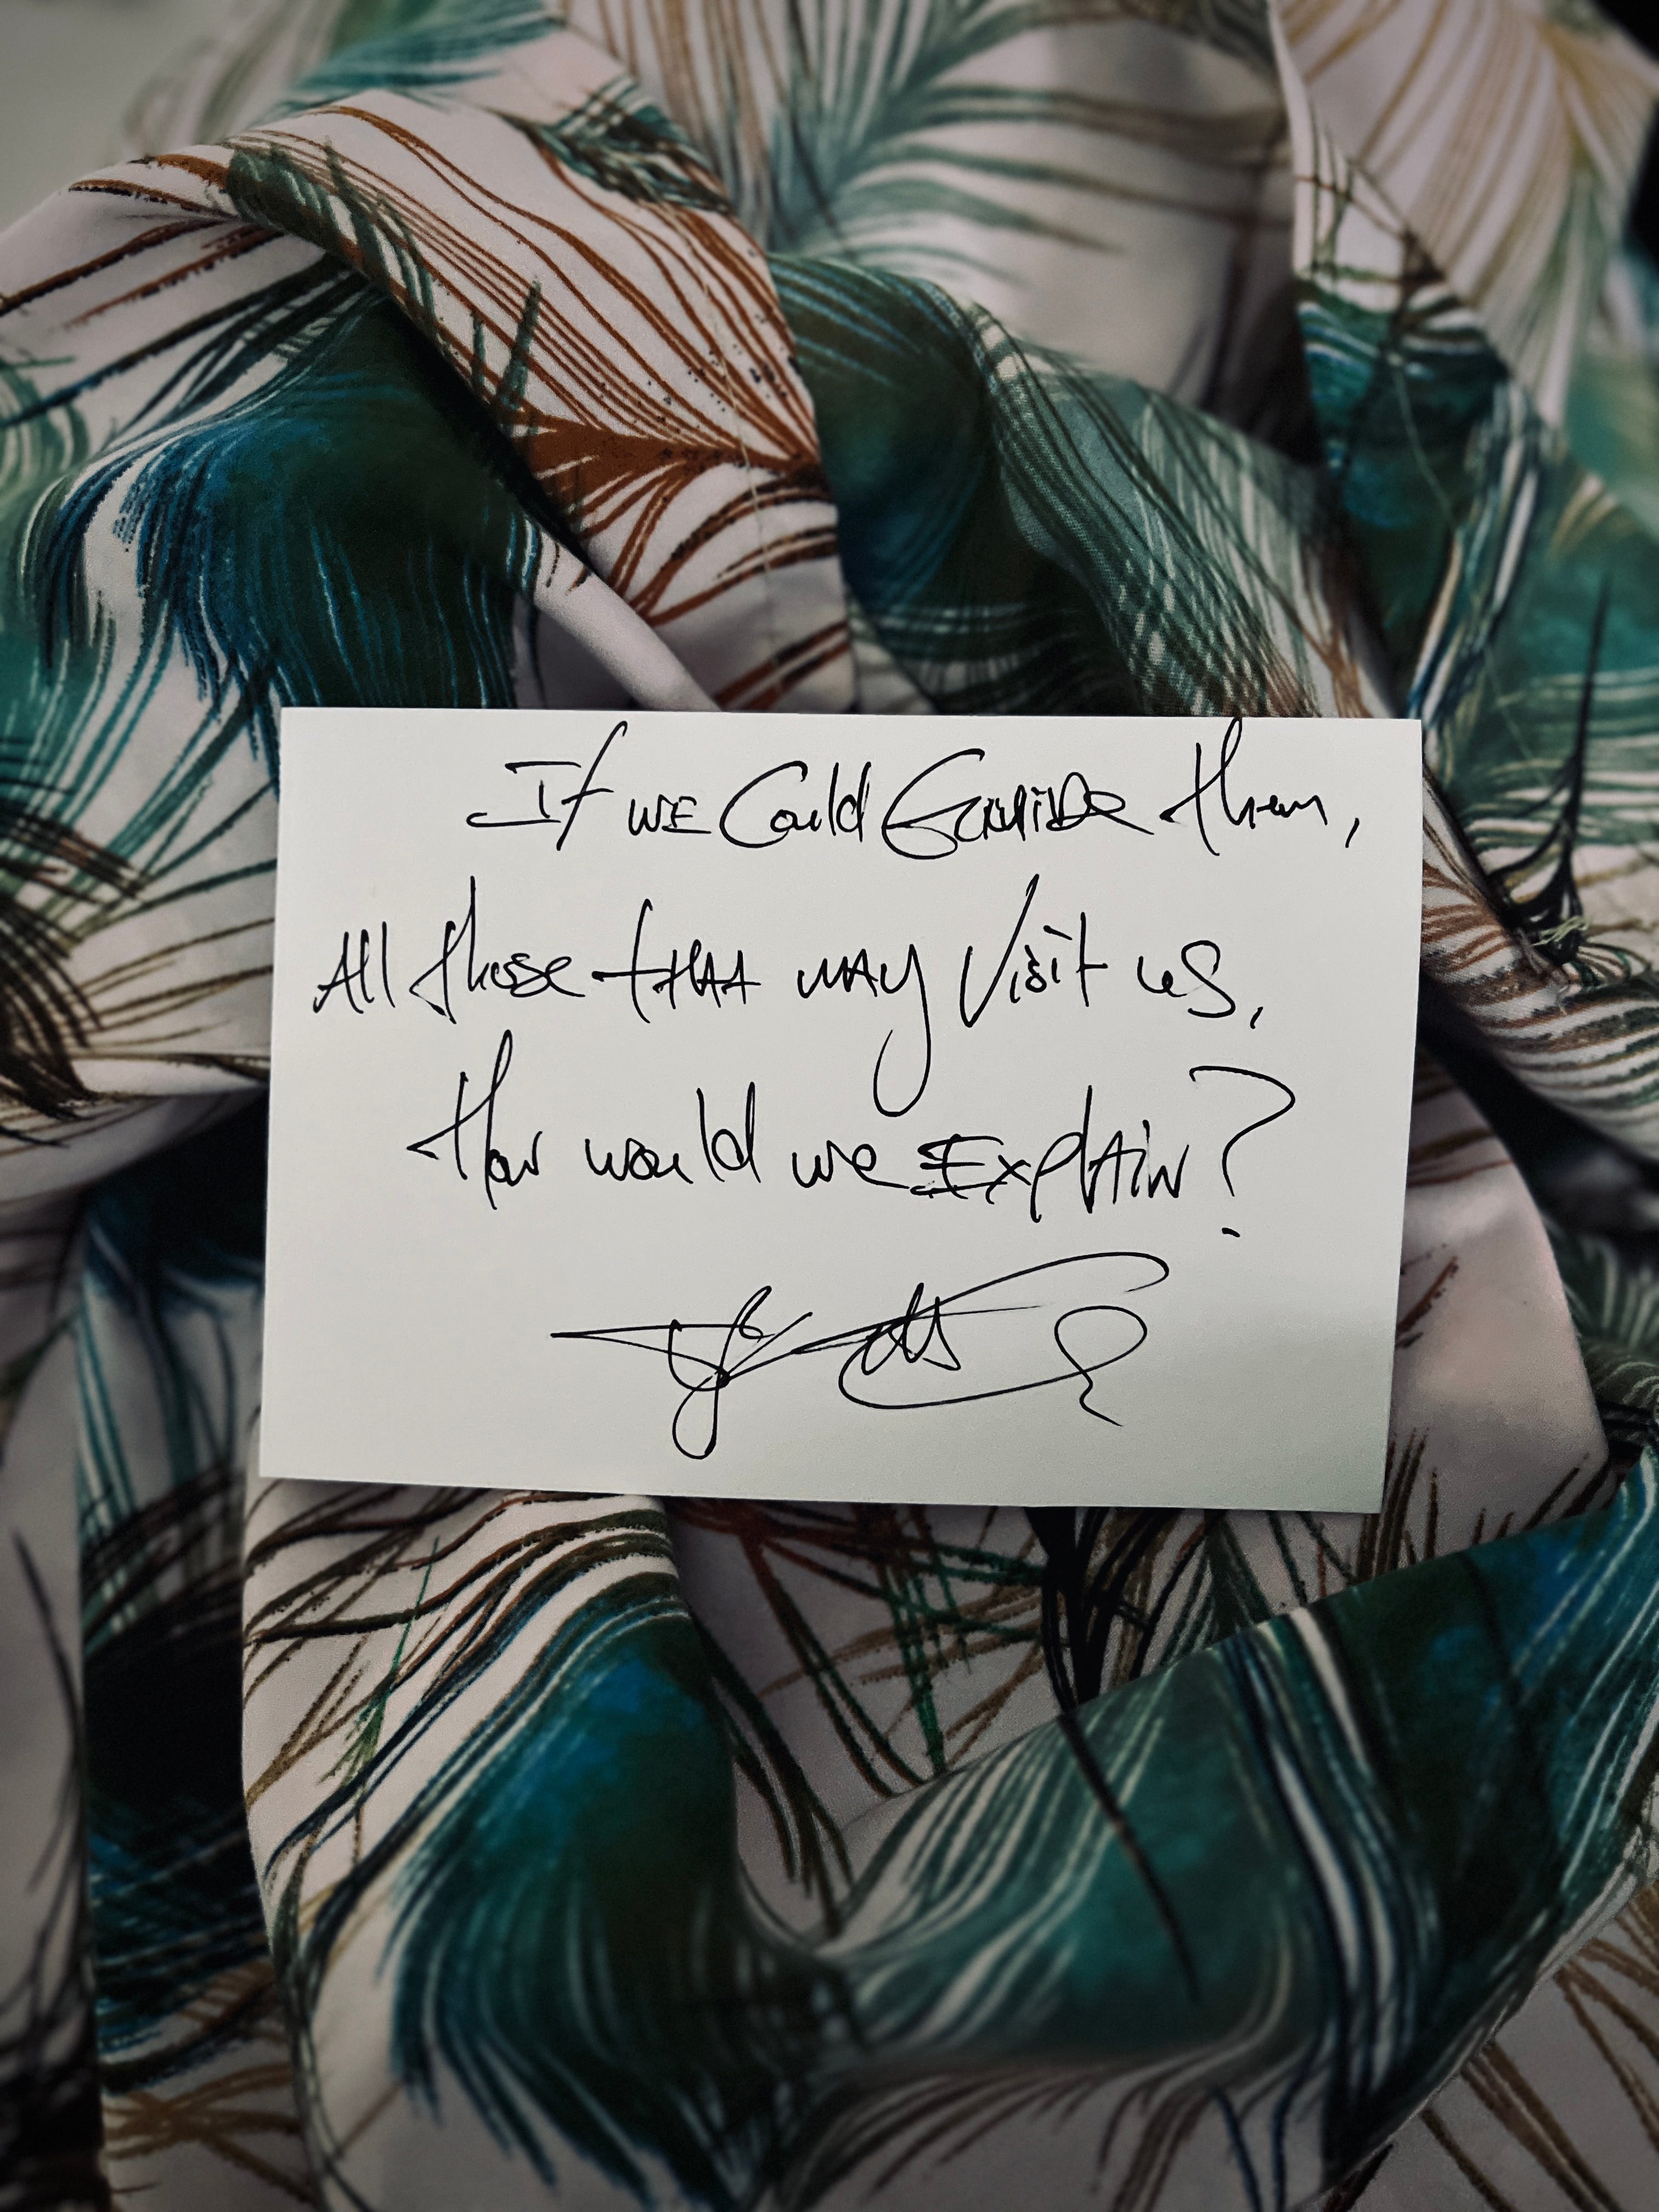 If we Could Guide them,
All those that may Visit us,
How would we Explain?